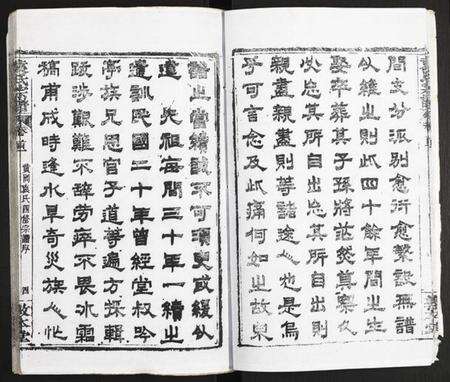 間支分派別愈衍愈繁設無譜
以維之則此四十餘年間之生
娶卒葬其子孫將茫然莫察久
必忘其所自出忘其所自出則
親盡親盡則等諸途人也是烏
乎可言念及此痛何如之故果
譜之當續誠不可須臾或緩以
遵 先祖每間三十年一續之
遺訓民國二十年曾經堂叔吟
亭族兄恩官子道等遍方採輯
跋涉艱難不辭勞瘁不畏冰霜
稿甫成時逢水旱奇災族人忙
袁氏宗譜 卷首
黃岡袁氏四修宗譜序
四